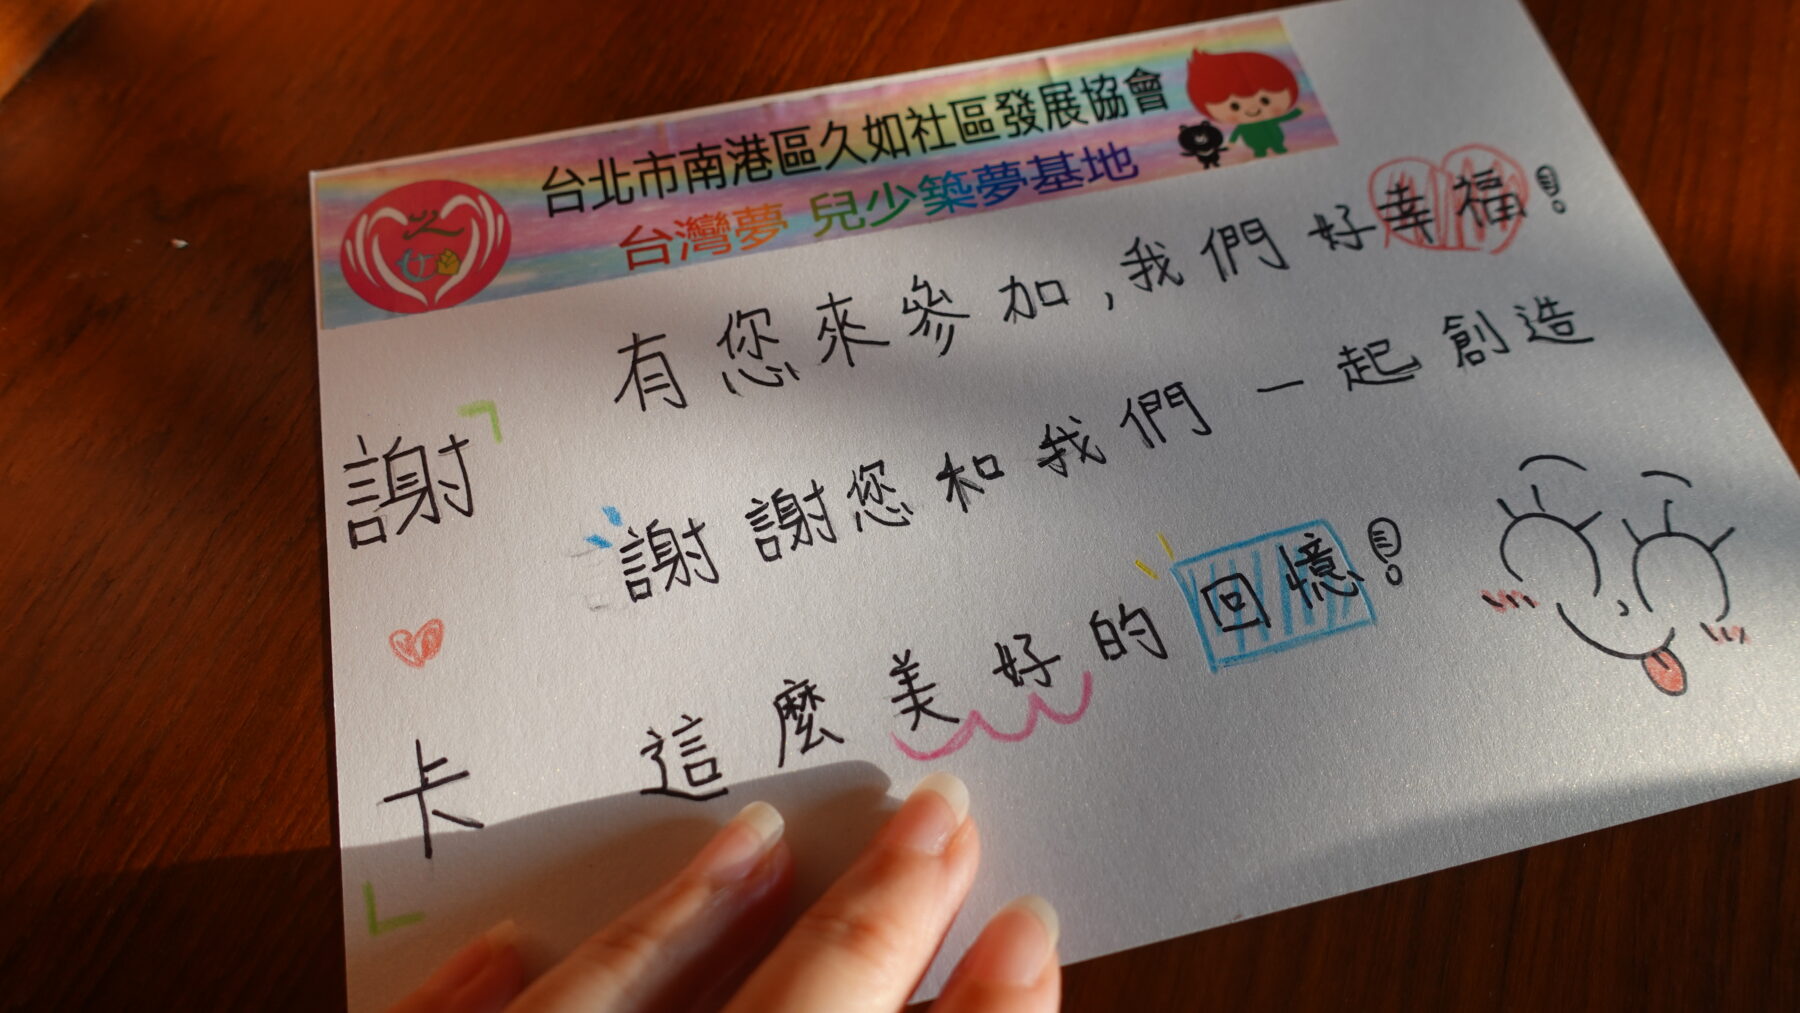 台北市南港區久如社區發展協會
台灣夢 兒少築夢基地
久如
謝
卡
有您來參加,我們好幸福!
謝謝您和我們一起創造
這麼美好的回憶!